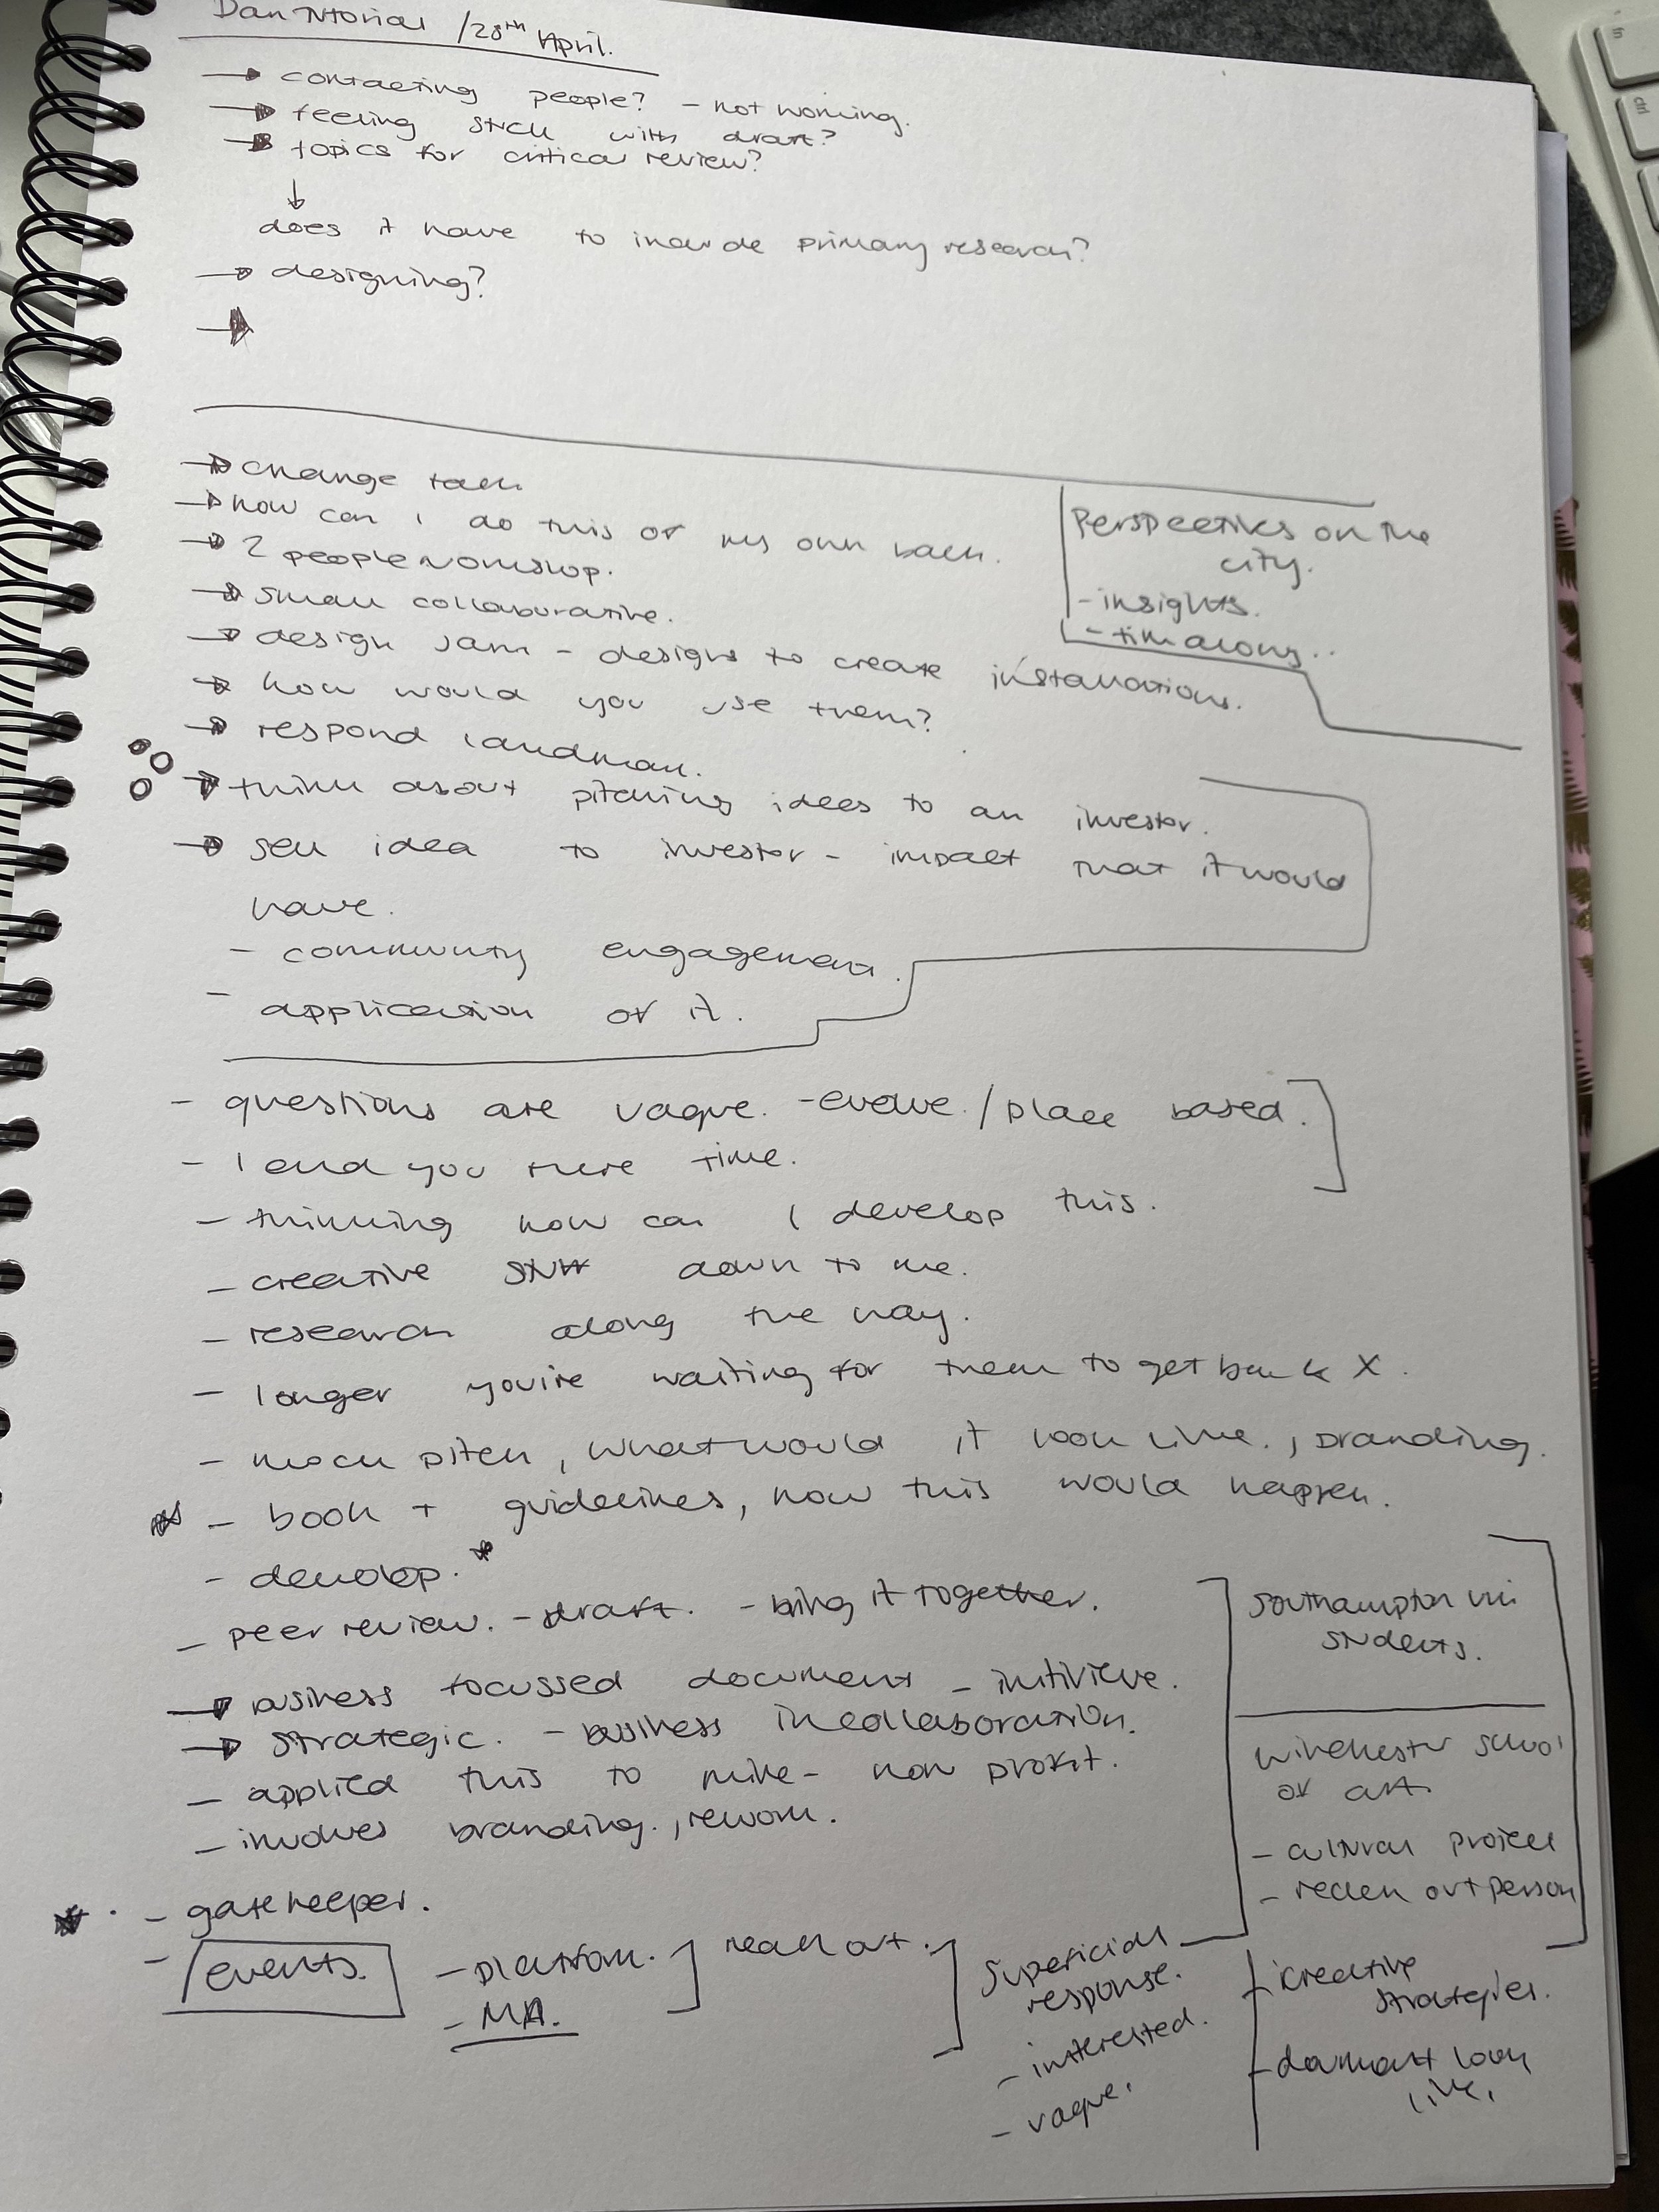 Dan Tutorial / 28th April.
→ contacting people? - not working.
→ feeling stuck with draft?
→ topics for critical review?
↓
does it have to include primary research?
→ designing?
→
→ change talk
→ how can i do this of my own back.
→ 2 people workshop.
→ small collaborative.
→ design jam - designs to create installations.
→ how would you use them?
→ respond landmark.
Perspectives on the
city.
- insights.
→ think about pitching idees to an investor.
→ sell idea to investor - impact that it would
have.
- community engagement.
- application of it.
- questions are vague. - evolve. / place based.
- lend you there time.
- thinking how can I develop this.
- creative stuff down to me.
- research along the way.
- longer you're waiting for them to get back X.
- mock pitch, what would it look like., branding.
- book + guidelines, how this would happen.
- develop. *
- peer review. - draft. - bring it together.
→ business focussed document -
→ strategic. - business in collaboration.
- applied this to mike - non profit.
- involves branding., rework.
Southampton uni
students.
Winchester school
of art.
- cultural project
- reach out person
- gatekeeper.
- events.
- platform.
- MA.
reach out.
Superficial
response.
- interested.
- vague.
- creative
strategies.
- look
like.